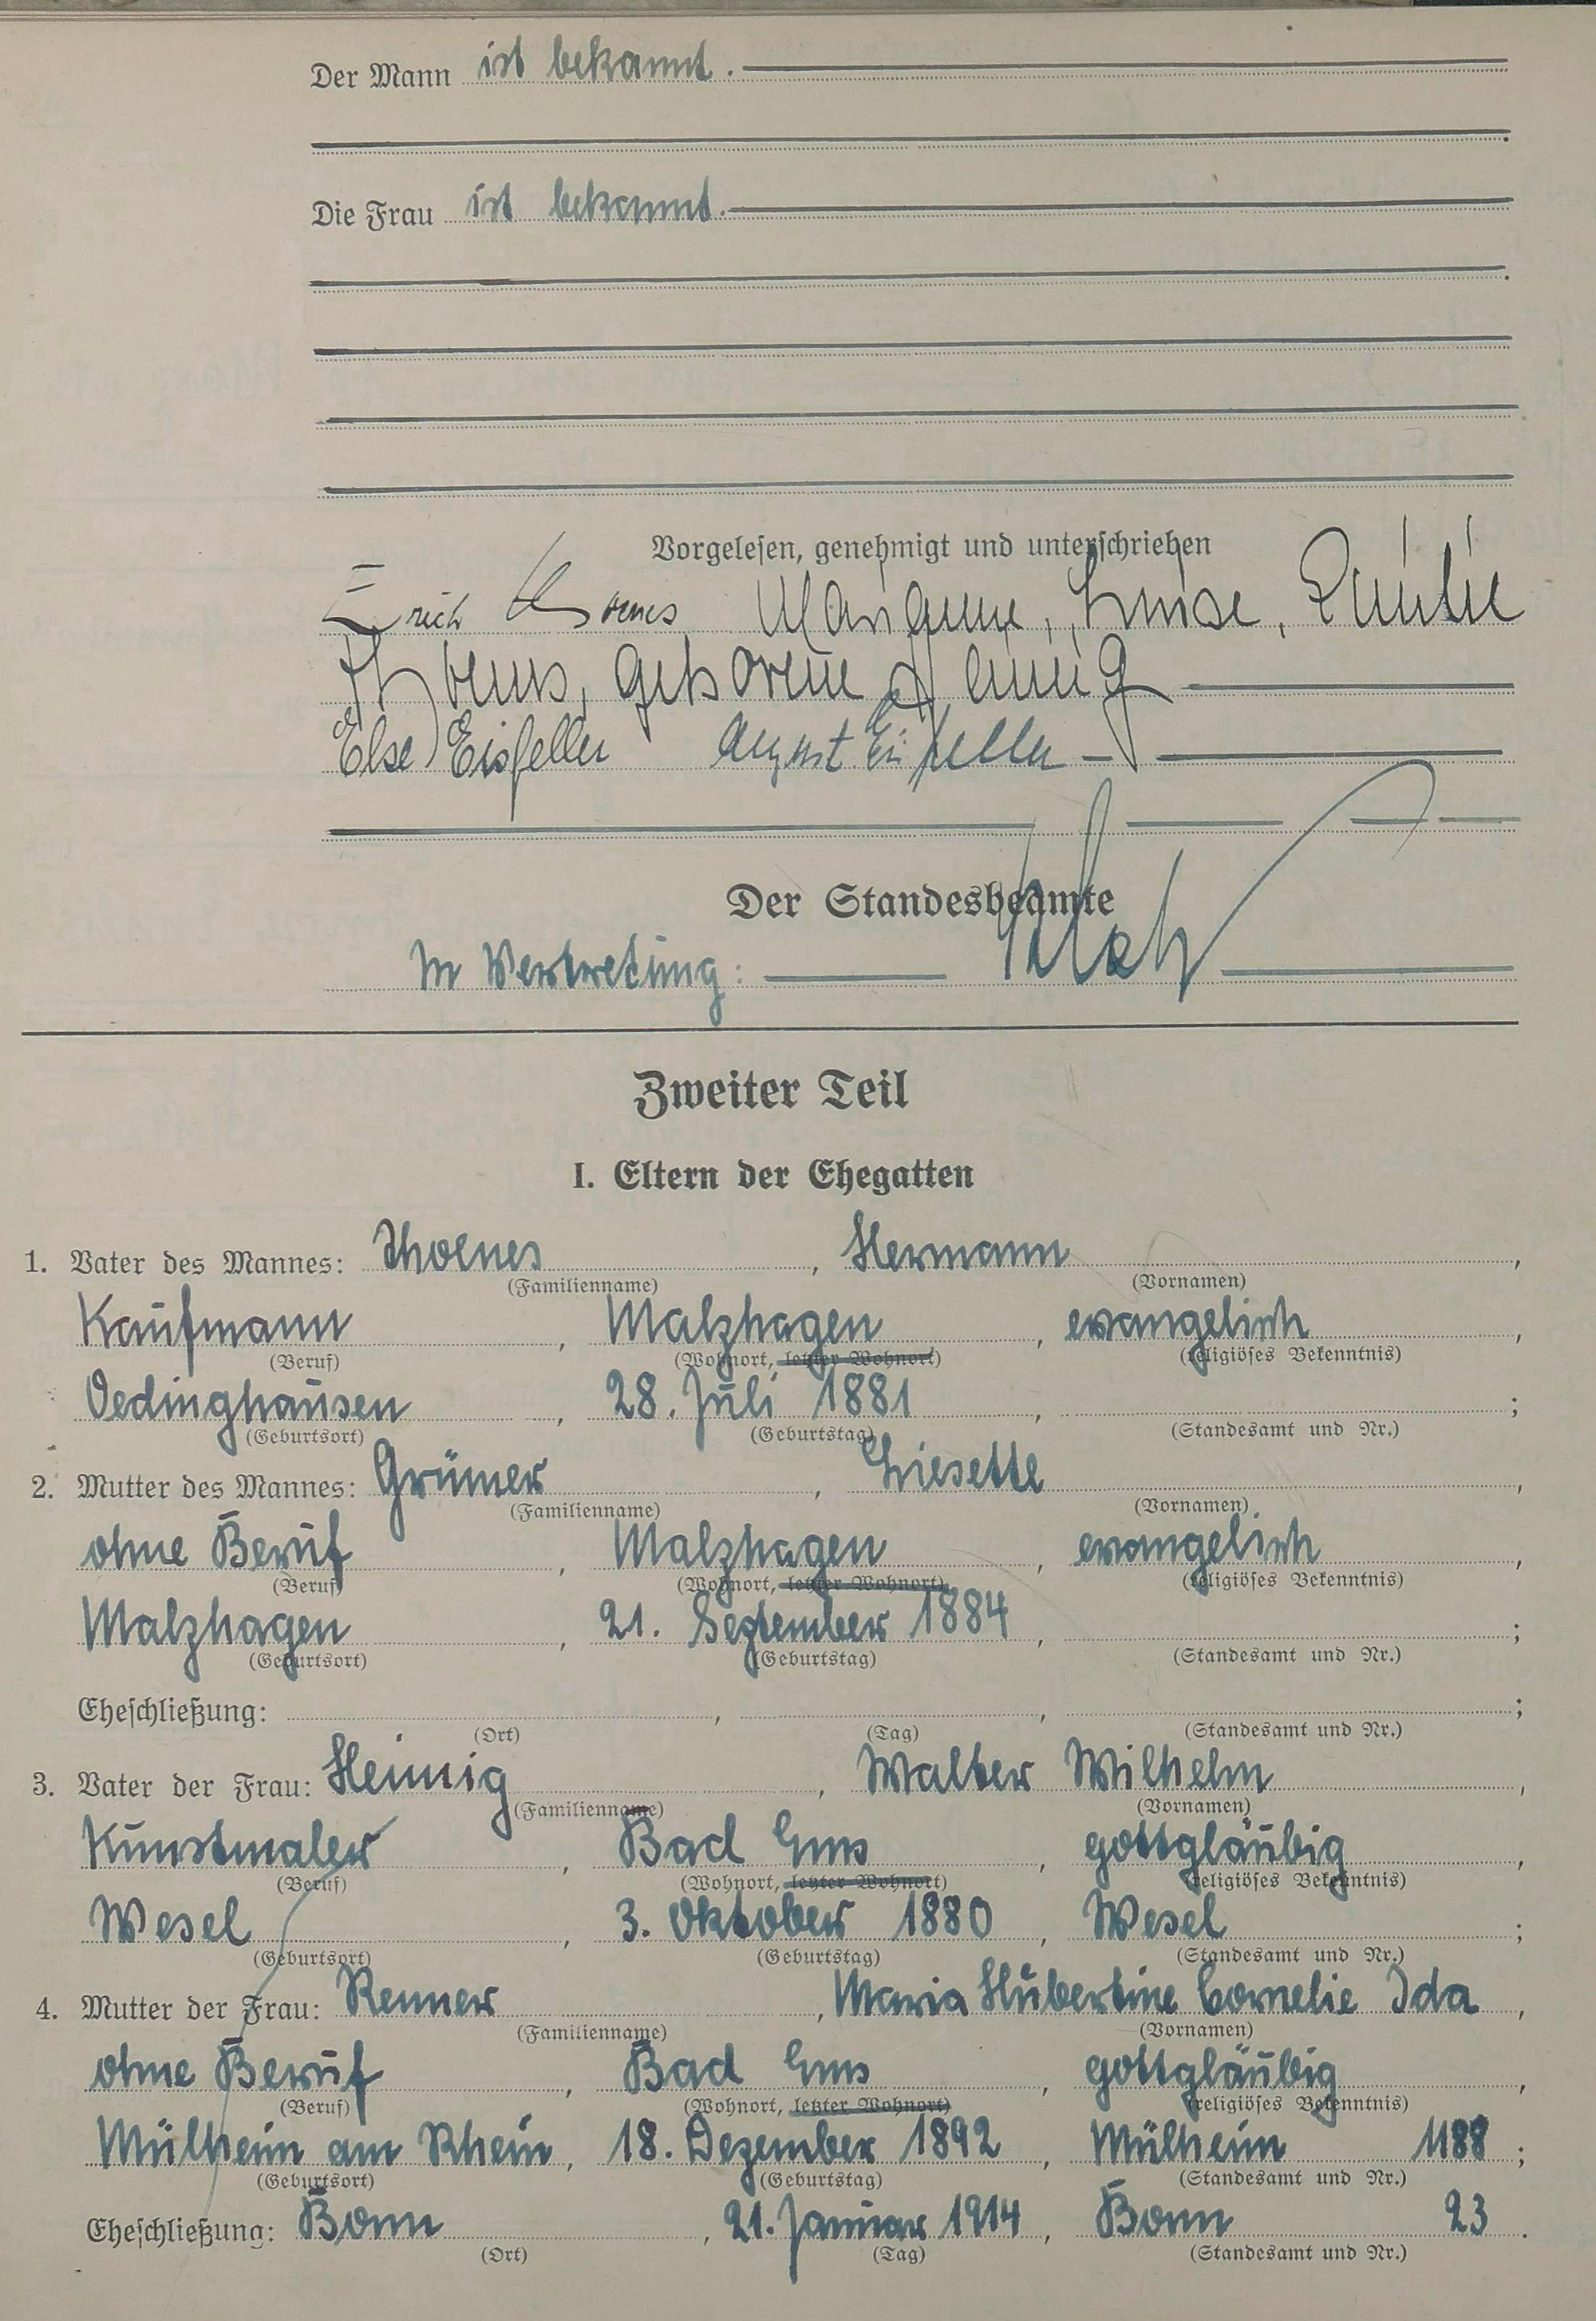 Der Mann ist bekannt.
Die Frau ist bekannt.
Vorgelesen, genehmigt und unterschrieben
Erich Thoenes Marianne, Luise, Emilie
Thoenes, geborene Hennig
Else Eisfeller August Eisfeller
Der Standesbeamte
In Vertretung:
Zweiter Teil
I. Eltern der Ehegatten
1. Vater des Mannes: Thoenes, Hermann,
(Familienname) (Vornamen)
Kaufmann, Malzhagen, evangelisch,
(Beruf) (Wohnort, letzter Wohnort) (religiöses Bekenntnis)
Oedinghausen, 28. Juli 1881, ;
(Geburtsort) (Geburtstag) (Standesamt und Nr.)
2. Mutter des Mannes: Grümer, Liesette,
(Familienname) (Vornamen)
ohne Beruf, Malzhagen, evangelisch,
(Beruf) (Wohnort, letzter Wohnort) (religiöses Bekenntnis)
Malzhagen, 21. September 1884, ;
(Geburtsort) (Geburtstag) (Standesamt und Nr.)
Eheschließung: , , ;
(Ort) (Tag) (Standesamt und Nr.)
3. Vater der Frau: Hennig, Walter Wilhelm,
(Familienname) (Vornamen)
Kunstmaler, Bad Ems, gottgläubig,
(Beruf) (Wohnort, letzter Wohnort) (religiöses Bekenntnis)
Wesel, 3. Oktober 1880, Wesel;
(Geburtsort) (Geburtstag) (Standesamt und Nr.)
4. Mutter der Frau: Renner, Maria Hubertine Cornelie Ida,
(Familienname) (Vornamen)
ohne Beruf, Bad Ems, gottgläubig,
(Beruf) (Wohnort, letzter Wohnort) (religiöses Bekenntnis)
Mülheim am Rhein, 18. Dezember 1892, Mülheim 1188;
(Geburtsort) (Geburtstag) (Standesamt und Nr.)
Eheschließung: Bonn, 21. Januar 1914, Bonn 23.
(Ort) (Tag) (Standesamt und Nr.)